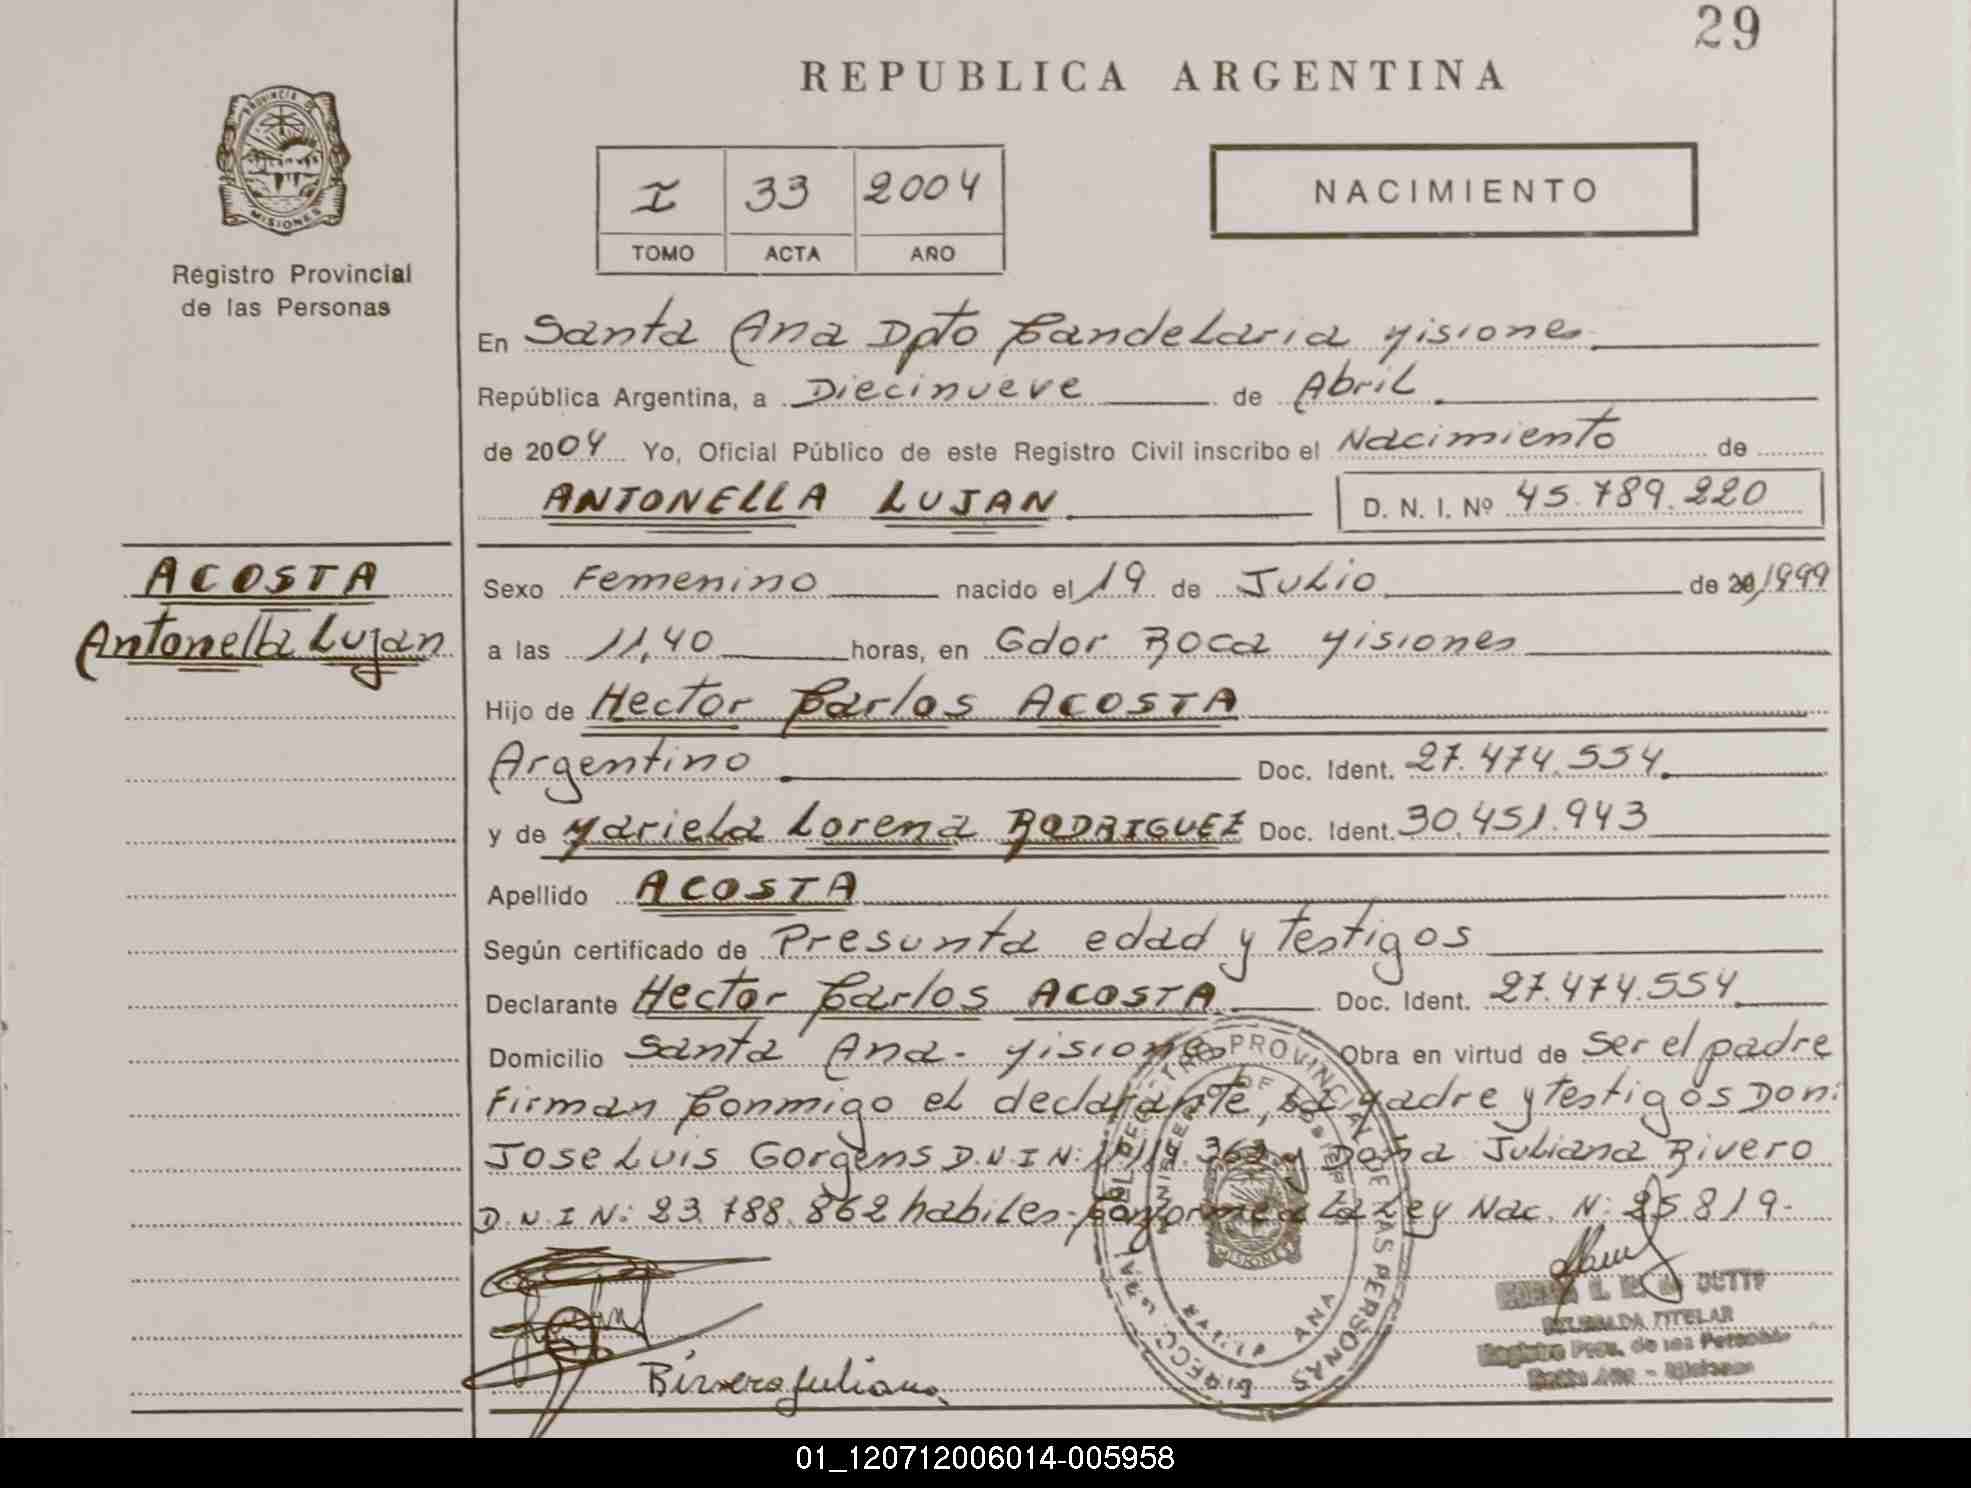 29
REPUBLICA ARGENTINA
PROVINCIA DE
MISIONES
Registro Provincial
de las Personas
I 33 2004
TOMO ACTA AÑO
NACIMIENTO
En Santa Ana Dpto Candelaria Misiones
República Argentina, a Diecinueve de Abril
de 2004 Yo, Oficial Público de este Registro Civil inscribo el Nacimiento de
ANTONELLA LUJAN D. N. I. Nº 45.789.220
ACOSTA
Antonella Lujan
Sexo Femenino nacido el 19 de Julio de 20/1999
a las 11,40 horas, en Gdor Roca Misiones
Hijo de Hector Carlos ACOSTA
Argentino Doc. Ident. 27.474.554
y de Mariela Lorena RODRIGUEZ Doc. Ident. 30.451.943
Apellido ACOSTA
Según certificado de Presunta edad y testigos
Declarante Hector Carlos ACOSTA Doc. Ident. 27.474.554
Domicilio Santa Ana - Misiones Obra en virtud de Ser el padre
Firman Conmigo el declarante, La Madre y testigos Don:
Jose Luis Gorgens D.N.I N: 363 y Doña Juliana Rivero
D.N.I N: 23.788.862 habiles - Conforme a La Ley Nac. N: 25.819-
Rivero Juliana
PROVINCIAL DE LAS PERSONAS
MISIONES
DELEGADA TITULAR
Registro Prov. de las Personas
Santa Ana - Misiones
01_120712006014-005958